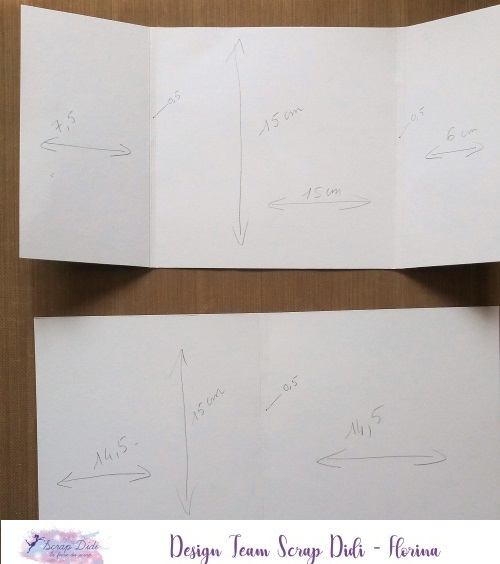 7,5
0,5
15 cm
15 cm
0,5
6 cm
14,5
15 cm
0,5
14,5
Scrap Didi
la fièvre du scrap
Design Team Scrap Didi - Florina